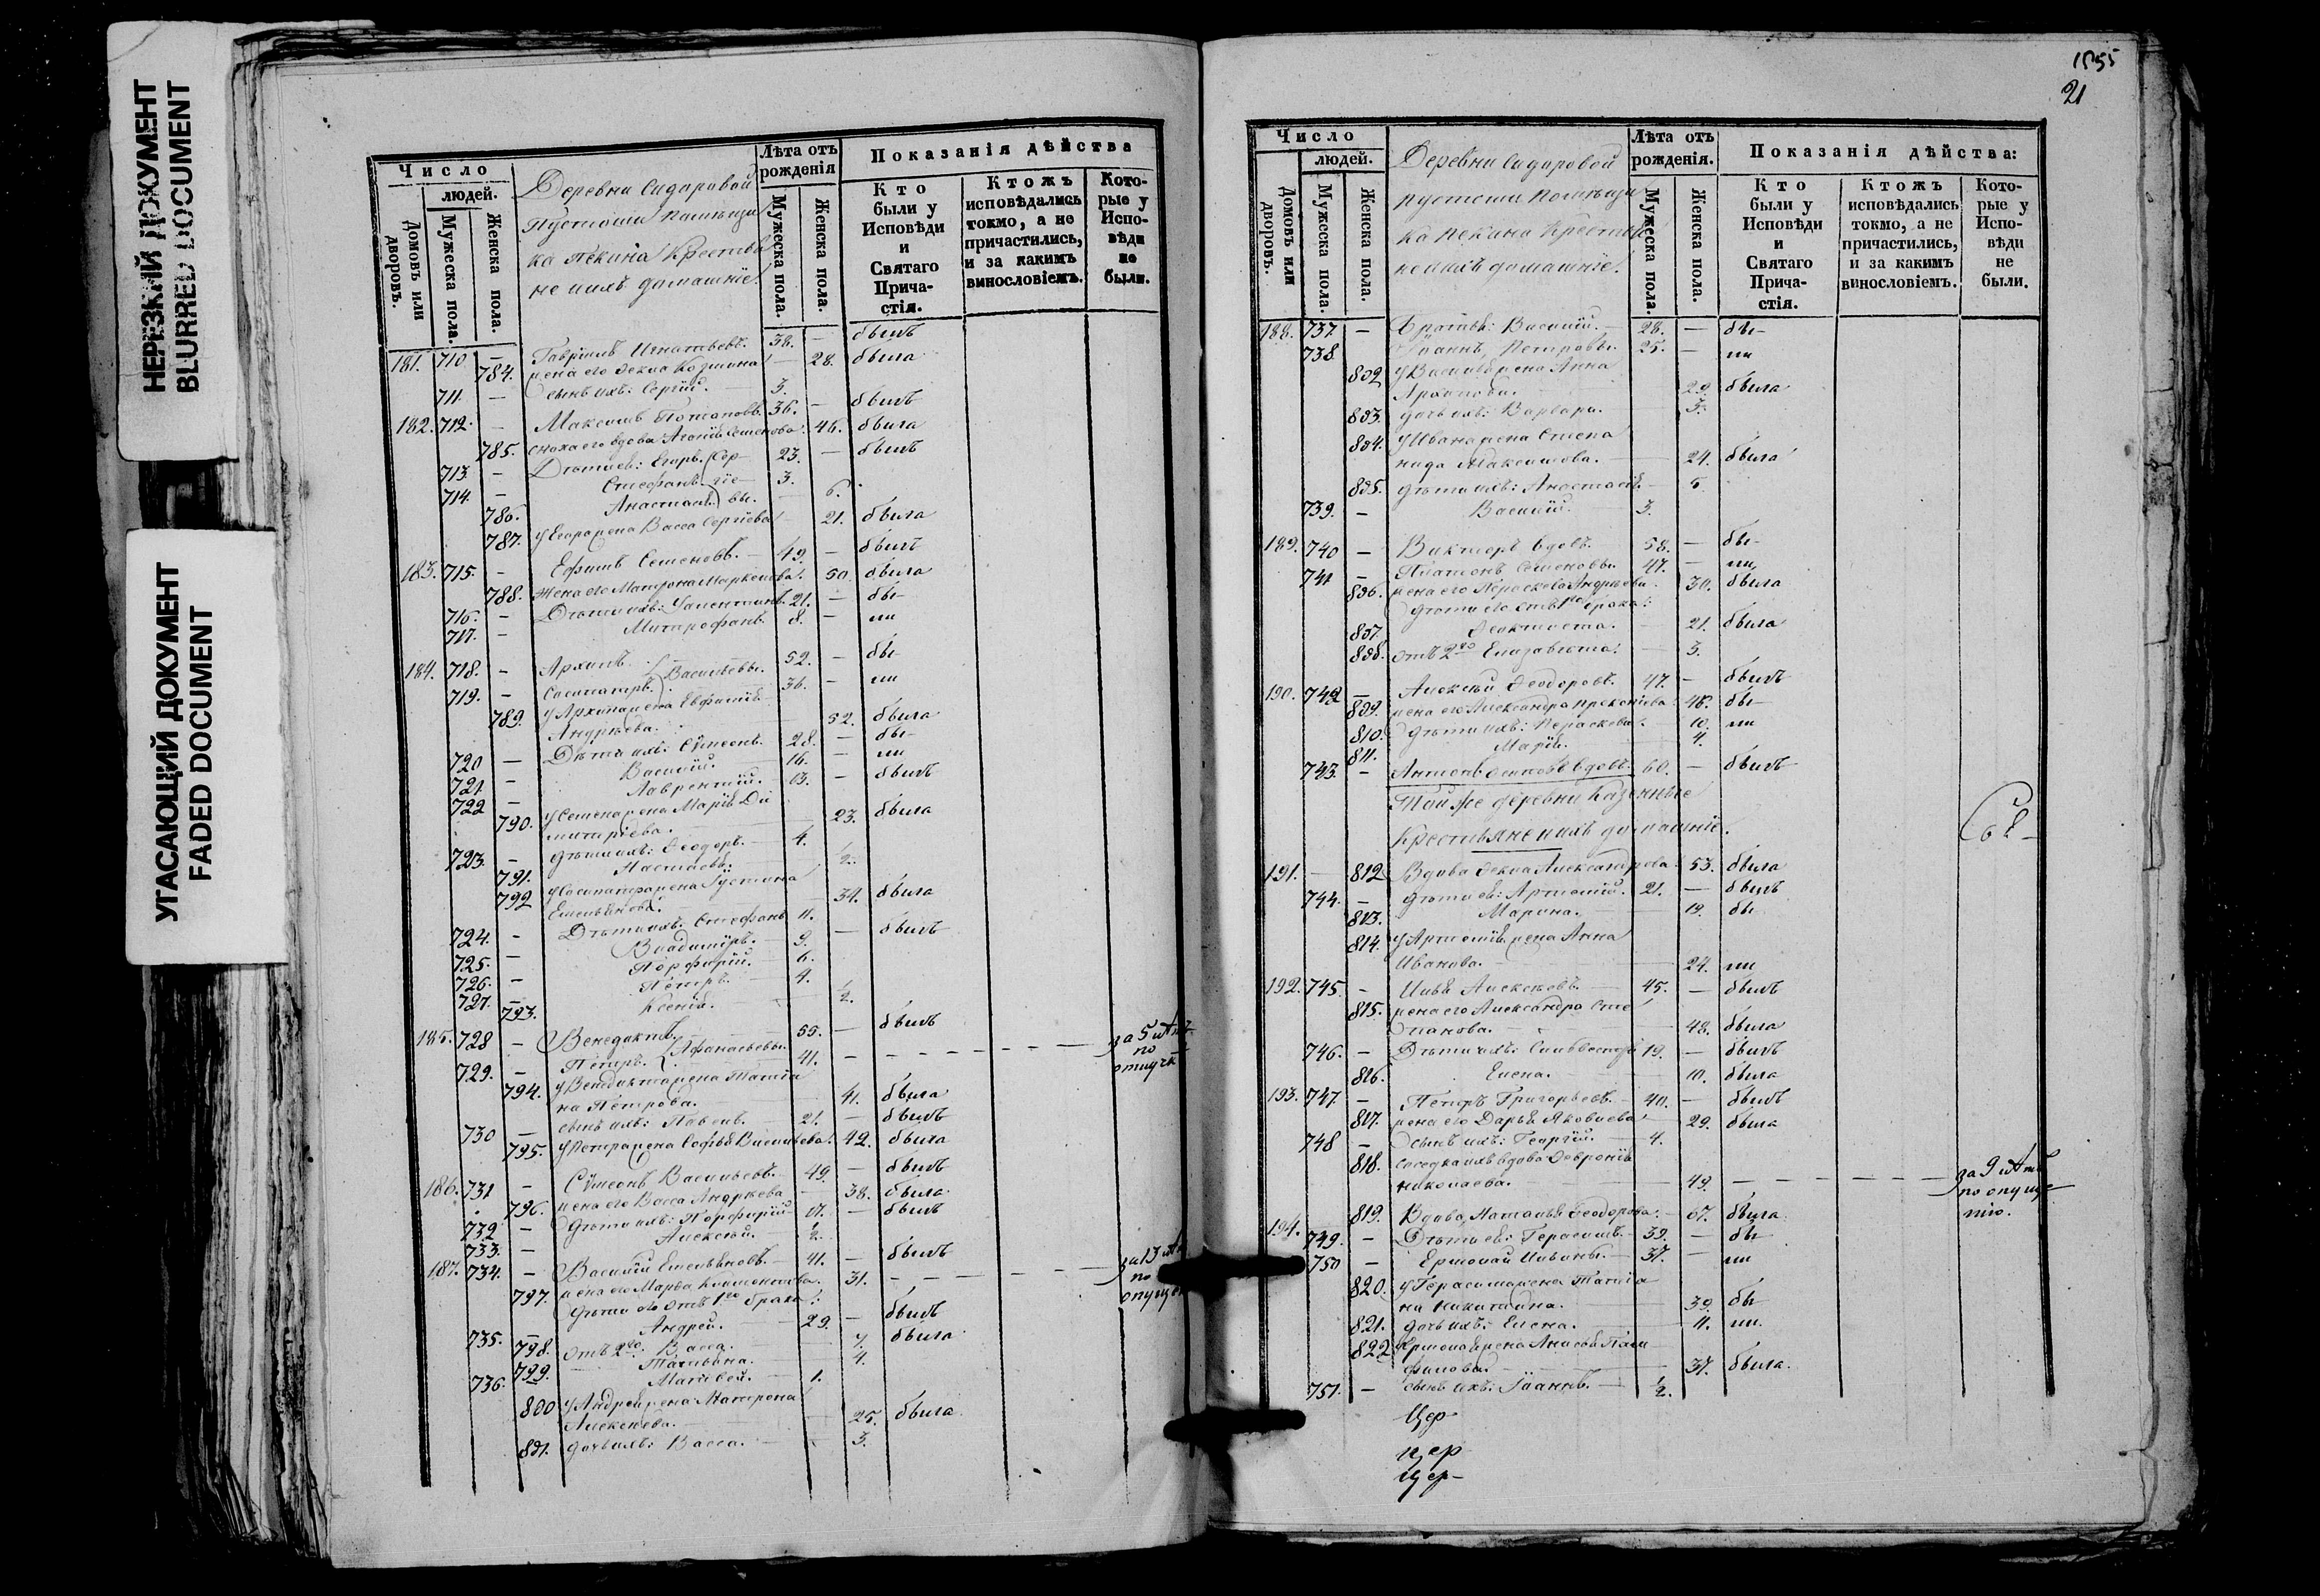 НЕРЕЗКИЙ ДОКУМЕНТ
BLURRED DOCUMENT
УГАСАЮЩИЙ ДОКУМЕНТ
FADED DOCUMENT
Число
людей.
Домовъ или дворовъ.
Мужеска пола.
Женска пола.
Деревни Сидаровой
Пустоши помѣщи
ка Пекина Крестья
не ихъ домашніе.
Лѣта отъ
рожденія
Мужеска пола.
Женска пола.
Показанія дѣйства
Кто
были у
Исповѣди
и
Святаго
Прича-
стія.
Ктожъ
исповѣдались
токмо, а не
причастились,
и за какимъ
винословіемъ.
Кото-
рые у
Испо-
вѣди
не
были.
181. 710 — Гавріилъ Игнатьевъ. 38. — былъ
784. жена его Ѳекла Козмина — 28. была
711. — сынъ ихъ: Сергій. 3.
182. 712. — Максимъ Потаповъ. 36. — былъ
785. сноха его вдова Агафія Семенова. 46. была
713. — Дѣти ея: Егоръ. 23. — былъ
714. — Стефанъ. 3.
786. Анастасія. 6.
787. у Егора жена Васса Сергіева 21. была
183. 715. — Ефимъ Семеновъ. — 49. — былъ
788. жена его Матрона Маркелова. 50. была
716. — Дѣти ихъ: 21. — бы-
717. — Митрофанъ. 8. — ли
184. 718. — Архипъ. Васильевы. 52. — бы-
719. — Сосипатръ. 36. — ли
789. у Архипа жена Евфимія
Андреева. 52. была
720 — Дѣти ихъ: Сѵмеонъ. 28. — бы-
721 — Василій. 16. — ли
722 — Лаврентій. 13. — былъ
790. у Семена жена Марія Ди
митріева. 23. была
723. — дѣти ихъ: Ѳеодоръ. 4.
791. Настасья. ½.
792 у Сосипатра жена Іустина
Емельянова. 34. была
724. — Дѣти ихъ: Стефанъ 11. — былъ
725. — Владиміръ. 9.
726. — Порфирій. 6.
727. — Петръ. 4.
793. Ксенія. ½.
185. 728 — Венедиктъ. Афанасьевы. 55. — былъ
729. — Петръ. 41. — за 5 лѣтъ по отлучк
794. у Венедикта жена Татія
на Петрова. 41. была
730 — сынъ ихъ: Павелъ. 21. — былъ
795. у Петра жена Софья Васильева. 42. была
186. 731 — Сѵмеонъ Васильевъ. 49. — былъ
796. жена его Васса Андреева 38. была
732 — дѣти ихъ: Порфирій — былъ
733. — Алексѣй. ½.
187. 734. — Василій Емельяновъ. 41. — былъ
797. жена его Марѳа 31. — за 13 лѣт по опущен
дѣти его отъ 1го брака:
735. — Андрей. 29. — былъ
798. отъ 2го Васса. 7. была
799. Татьяна. 4.
736. Матвей. 1.
800 у Андрея жена Матрона
Алексѣева. 25. была
801. дочь ихъ: Васса. 3.
1855
21
Число
людей.
Домовъ или дворовъ.
Мужеска пола.
Женска пола.
Деревни Сидаровой
пустоши помѣщи
ка Пекина Крестья
не ихъ домашніе.
Лѣта отъ
рожденія.
Мужеска пола.
Женска пола.
Показанія дѣйства:
Кто
были у
Исповѣди
и
Святаго
Прича-
стія.
Ктожъ
исповѣдались
токмо, а не
причастились,
и за какимъ
винословіемъ.
Кото-
рые у
Испо-
вѣди
не
были.
188. 737 — Братья: Василій. — 28. — бы-
738 Іоаннъ Петровы. 25. — ли
802 у Василья жена Анна
Архипова. 29. была
803. дочь ихъ: Варвара. 3.
804. у Ивана жена Степа
нида Максимова. 24. была
805. дѣти ихъ: Анастасія 5.
739. — Василій. 3.
189. 740 — Викторъ вдовъ. 58. — бы-
741 — Платонъ Семеновы. 47. — ли,
806. жена его Параскева Андреева. 30. была
дѣти его отъ 1го брака:
807. Ѳеоктиста. 21. была
808. отъ 2го Елизавета. 3.
190. 742 — Алексѣй Ѳеодоровъ. 47. — былъ
809. жена его Александра Прокопіева. 46. бы-
810. дѣти ихъ: Параскева. 10. ли
811. Марія. 4.
743. — Антонъ вдовъ. 60. — былъ
Той же деревни Казенные
Крестьяне и ихъ домашніе.
191. — 812 Вдова Ѳекла Александрова. 53. была
744. — дѣти ея: Артемій. 21. — былъ
813. Марина. 19. бы-
814. у Артемія жена Анна
Иванова. 24. ли
192. 745. — Илья Алексѣевъ. 45. — былъ
815. жена его Александра Сте
панова. 48. была
746. — Дѣти ихъ: Сильвестръ 19. — былъ
816. Елена. 10. была
193. 747. — Петръ Григорьевъ. 40. — былъ
817. жена его Дарья Яковлева 29. была
748 — сынъ ихъ: Георгій. 4.
818. соседка ихъ вдова Ѳевронія
Николаева. 49. — за 9 лѣтъ по опуще нію.
194. 819. Вдова Наталья Ѳеодорова. — 67. была
749. — Дѣти ея: Герасимъ. 39. — бы
750 — Ермолай Ильины. 37. — ли
820. у Герасима жена Татія
на Никитина. 39. бы
821. дочь ихъ: Елена. 11. ли.
822 у Ермолая жена Анисья Пам
филова. 37. была.
751. — сынъ ихъ: Іоаннъ. ½.
Цер
цер
цер